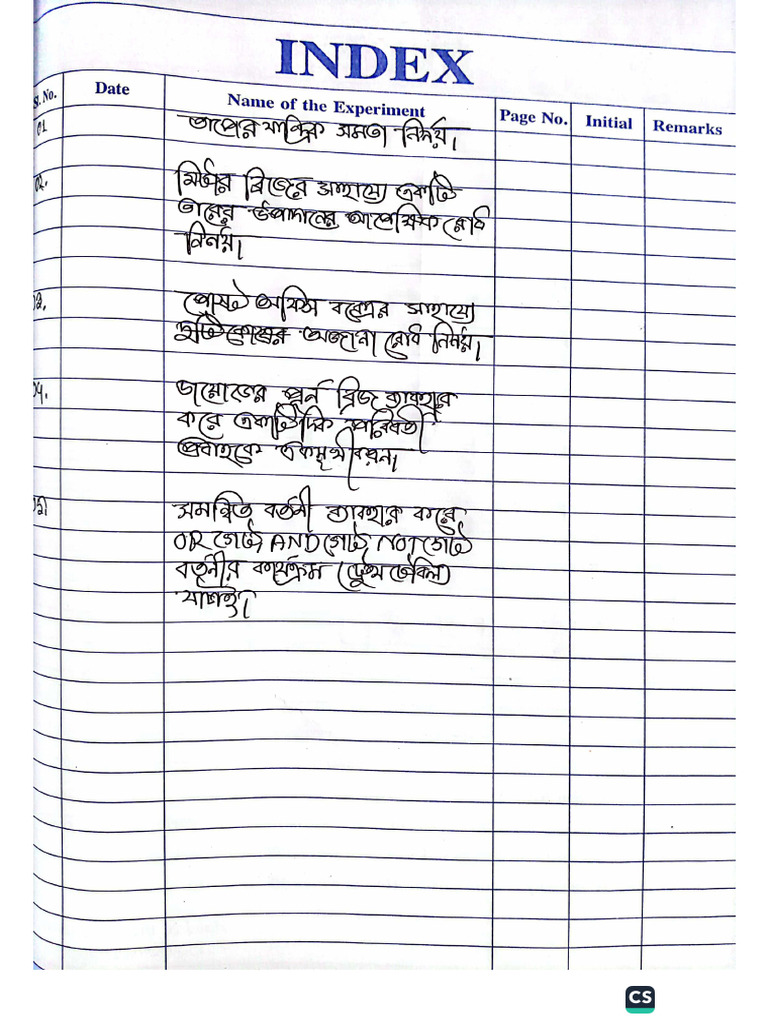 INDEX
Sl. No. Date Name of the Experiment Page No. Initial Remarks
01 তাপের যান্ত্রিক সমতা নির্নয়।
02. মিটার ব্রিজের সাহায্যে একটি
তারের উপাদানের আপেক্ষিক রোধ
নির্নয়।
পোষ্ট অফিস বক্সের সাহায্যে
অজানা রোধ নির্নয়।
04. ডায়োডের পূর্ন ব্রিজ ব্যবহার
করে একটি দিক পরিবর্তী
প্রবাহকে একমুখীকরন।
সমন্বিত বর্তনী ব্যবহার করে
OR গেট, AND গেট, NOT গেট
বর্তনীর কার্যক্রম (ট্রুথ টেবিল)
যাচাই।
CS